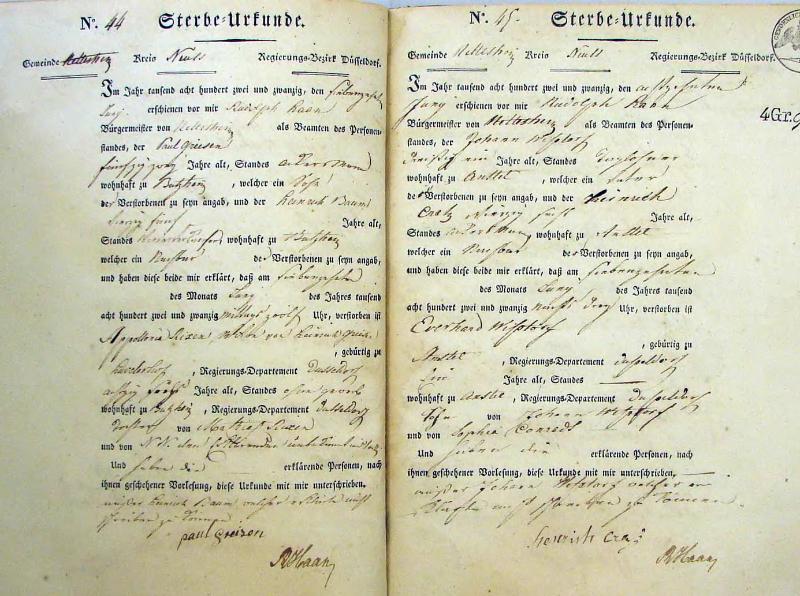 No. 44 Sterbe-Urkunde.
Gemeinde Nettesheim Kreis Neuss Regierungs-Bezirk Düsseldorf.
Im Jahr tausend acht hundert zwei und zwanzig, den siebenzehnten
Juny erschienen vor mir Rudolph Haan
Bürgermeister von Nettesheim als Beamten des Personen-
standes, der Paul Greisen
fünfzig zwey Jahre alt, Standes Ackersmann
wohnhaft zu Butzheim, welcher ein Sohn
der Verstorbenen zu seyn angab, und der Heinrich Baum
vierzig fünf Jahre alt,
Standes wohnhaft zu Butzheim
welcher ein Nachbar der Verstorbenen zu seyn angab,
und haben diese beide mir erklärt, daß am siebenzehnten
des Monats Juny des Jahres tausend
acht hundert zwei und zwanzig mittags zwölf Uhr, verstorben ist
Appollonia
, gebürtig zu
, Regierungs-Departement Düsseldorf
achtzig sechs Jahre alt, Standes ohne Gewerb
wohnhaft zu Butzheim, Regierungs-Departement Düsseldorf
Tochter von Mathias
und von N. N.
Und haben die erklärende Personen, nach
ihnen geschehener Vorlesung, diese Urkunde mit mir unterschrieben.
außer Heinrich Baum welcher erklärte nicht
schreiben zu können
paul Greizen
R Haan
No. 45 Sterbe-Urkunde.
Gemeinde Nettesheim Kreis Neuss Regierungs-Bezirk Düsseldorf.
4Gr.
Im Jahr tausend acht hundert zwei und zwanzig, den achtzehnten
Juny erschienen vor mir Rudolph Haan
Bürgermeister von Nettesheim als Beamten des Personen-
standes, der Johann
dreißig ein Jahre alt, Standes Taglöhner
wohnhaft zu Anstel, welcher ein Vater
des Verstorbenen zu seyn angab, und der Heinrich
vierzig sechs Jahre alt,
Standes Ackersmann wohnhaft zu Anstel
welcher ein Nachbar des Verstorbenen zu seyn angab,
und haben diese beide mir erklärt, daß am siebenzehnten
des Monats Juny des Jahres tausend
acht hundert zwei und zwanzig nachts drey Uhr, verstorben ist
Everhard
, gebürtig zu
Anstel, Regierungs-Departement Düsseldorf
ein Jahre alt, Standes
wohnhaft zu Anstel, Regierungs-Departement Düsseldorf
Sohn von Johann
und von Sophia Conrads
Und haben die erklärende Personen, nach
ihnen geschehener Vorlesung, diese Urkunde mit mir unterschrieben.
außer Johann welcher er-
klärte nicht schreiben zu können
henrich
R Haan